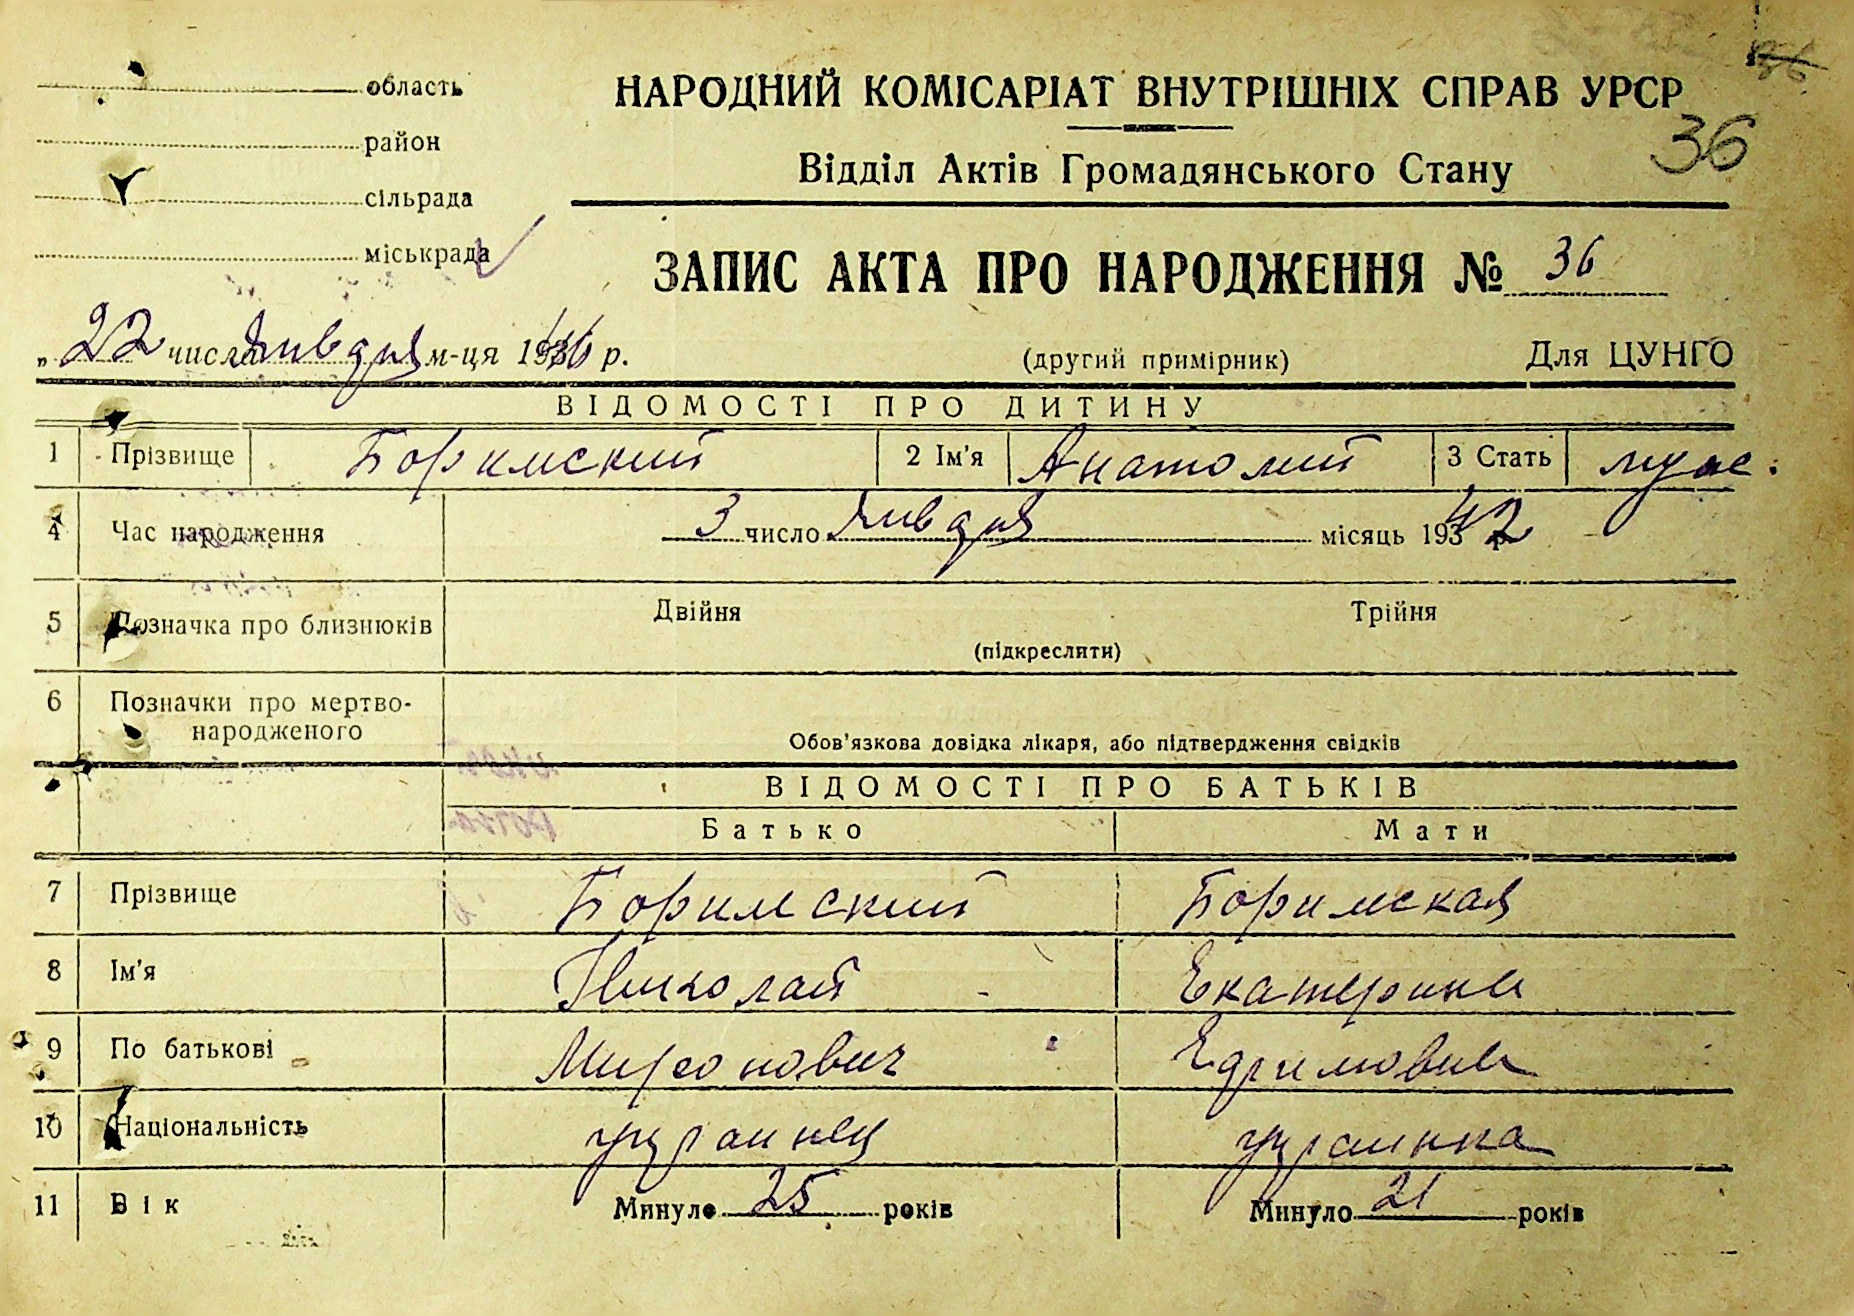 36
область
район
сільрада
міськрада
НАРОДНИЙ КОМІСАРІАТ ВНУТРІШНІХ СПРАВ УРСР
36
Відділ Актів Громадянського Стану
ЗАПИС АКТА ПРО НАРОДЖЕННЯ № 36
„22 числа января м-ця 1946 р.
(другий примірник)
Для ЦУНГО
ВІДОМОСТІ ПРО ДИТИНУ
1 Прізвище Боримский 2 Ім'я Анатолий 3 Стать муж.
4 Час народження 3 число января місяць 1942 р.
5 Позначка про близнюків Двійня Трійня
(підкреслити)
6 Позначки про мертво-
народженого
Обов'язкова довідка лікаря, або підтвердження свідків
ВІДОМОСТІ ПРО БАТЬКІВ
Батько Мати
7 Прізвище Боримский Боримская
8 Ім'я Николай Екатерина
9 По батькові Миронович Ефимовна
10 Національність украинец украинка
11 Вік Минуло 25 років Минуло 21 років